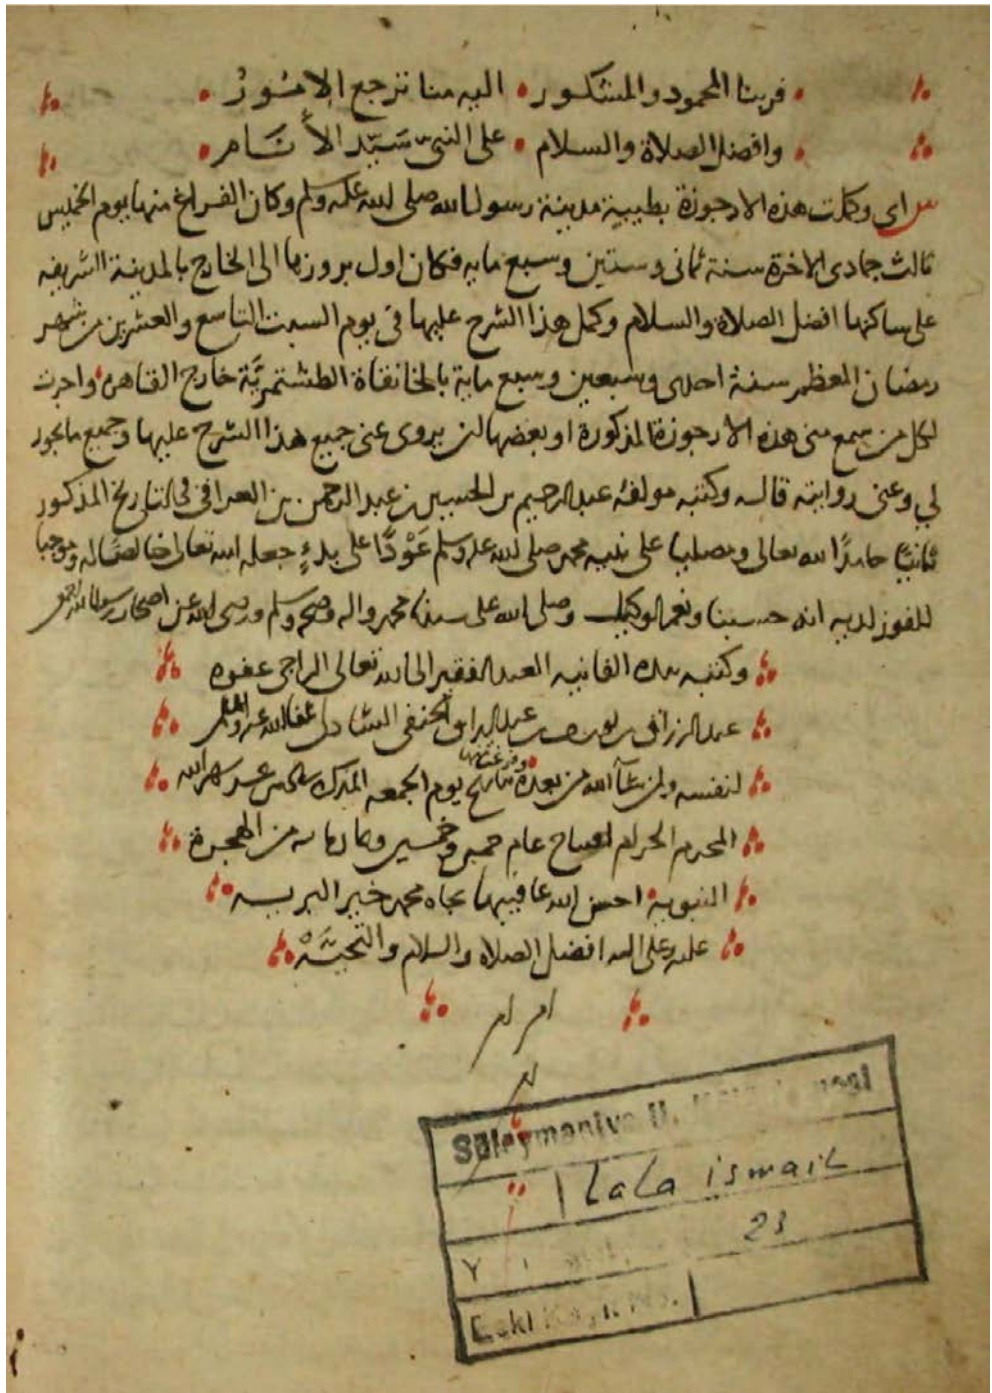 فربنا المحمود والمشكور • اليه منا ترجع الامور
وافضل الصلاة والسلام • على النبي سَيّد الأنام
س اى وكملت هذه الارجوزة بطيبة مدينة رسول الله صلى الله عليه وسلم وكان الفراغ منها يوم الخميس
ثالث جمادى الاخرة سنة ثمانى وستين وسبع مايه فكان اول بروزها الى الخارج بالمدينة الشريفه
على ساكنها افضل الصلاة والسلام وكمل هذا الشرح عليها فى يوم السبت التاسع والعشرين من شهر
رمضان المعظم سنة احدى وسبعين وسبع ماية بالخانقاة الطشتمريَّة خارج القاهرة واجزت
لكل من سمع منى هذه الارجوزة المذكورة او بعضها ان يروى عنى جميع هذا الشرح عليها وجميع مايجوز
لي وعنى روايته قاله وكتبه مولفه عبد الرحيم بن الحسين بن عبد الرحمن بن العراقى فى التاريخ المذكور
ثانيًا حامدًا لله تعالى ومصليا على نبيه محمد صلى الله عليه وسلم عَوْدًا على بدءٍ جعله الله تعالى خالصًا له وموجبا
للفوز لديه انه حسبنا ونعم الوكيل وصلى الله على سيدنا محمد واله وصحبه وسلم ورضى الله عن اصحاب رسول الله اجمعين
وكتبه بيده الفانيه العبد الفقير الى الله تعالى الراجى عفوه
عبد الرزاق بن يوسف بن عبد الرزاق الحنفى الشاذلى عفا الله عنه
لنفسه ولمن شآ الله من بعده وفرغ منها يوم الجمعه المبارك خامس عشر شهر الله
المحرم الحرام افتتاح عام خمس وخمسين وثمان مايه من الهجرة
النبوية احسن الله عاقبتها بجاه محمد خير البريه
عليه وعلى اله افضل الصلاه والسلام والتحيَّهْ
Süleymaniye U. Kütüphanesi
Lala ismail
23
Eski Kayıt No.